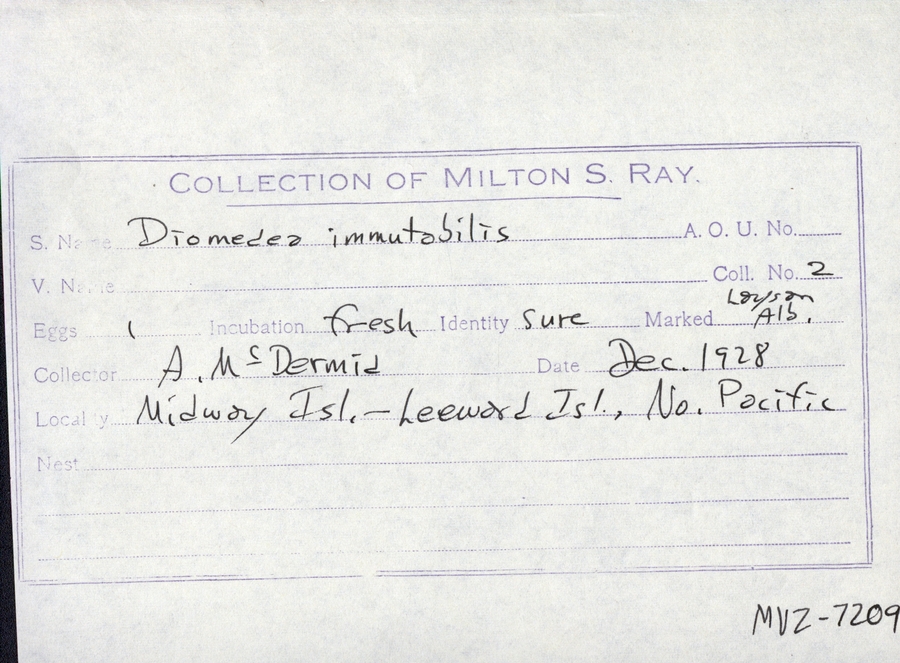 COLLECTION OF MILTON S. RAY.
S. Name Diomedea immutabilis A. O. U. No.
V. Name Coll. No. 2
Eggs 1 Incubation fresh Identity sure Marked Laysan Alb.
Collector A. McDermid Date Dec. 1928
Locality Midway Isl. – Leeward Isl., No. Pacific
Nest
MVZ-7209